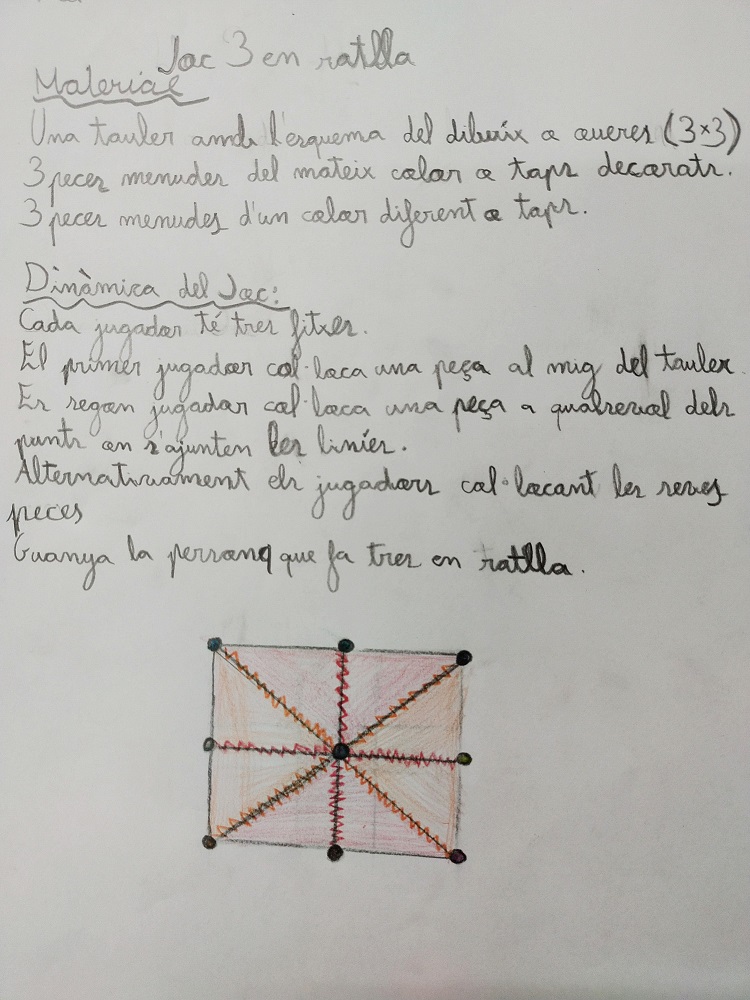 Joc 3 en ratlla
Material
Una tauler amb l'esquema del dibuix o aueres (3×3)
3 peces menudes del mateix color o taps decorats.
3 peces menudes d'un color diferent o taps.
Dinàmica del Joc:
Cada jugador té tres fitxes.
El primer jugador col·loca una peça al mig del tauler.
Es segon jugador col·loca una peça a qualsevol dels
punts on s'ajunten les liníes.
Alternativament els jugadors col·locant les seves
peces
Guanya la persona que fa tres en ratlla.